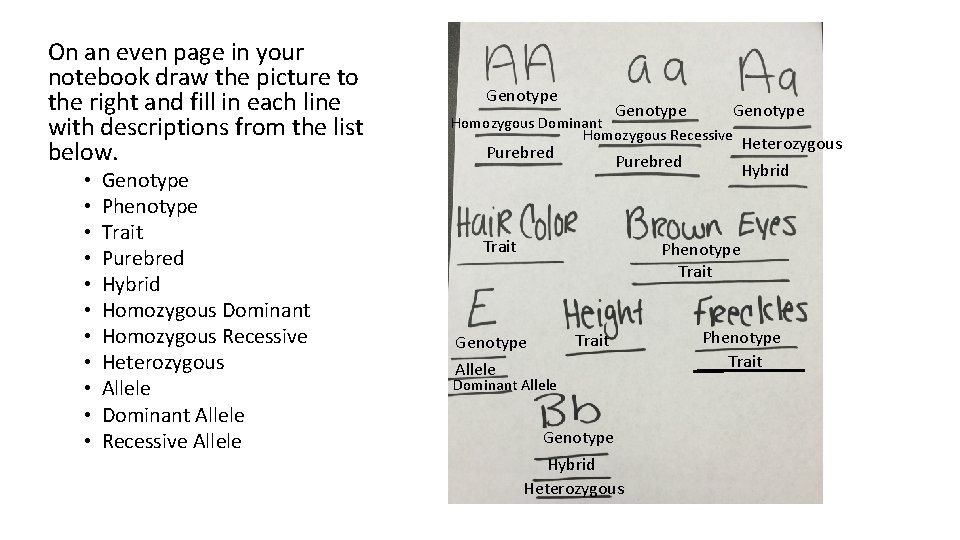 On an even page in your
notebook draw the picture to
the right and fill in each line
with descriptions from the list
below.
• Genotype
• Phenotype
• Trait
• Purebred
• Hybrid
• Homozygous Dominant
• Homozygous Recessive
• Heterozygous
• Allele
• Dominant Allele
• Recessive Allele
AA
Genotype
Homozygous Dominant
Purebred
aa
Genotype
Homozygous Recessive
Purebred
Aa
Genotype
Heterozygous
Hybrid
HaiR ColoR
Trait
BRown Eyes
Phenotype
Trait
E
Genotype
Allele
Dominant Allele
Height
Trait
FReckles
Phenotype
Trait
Bb
Genotype
Hybrid
Heterozygous